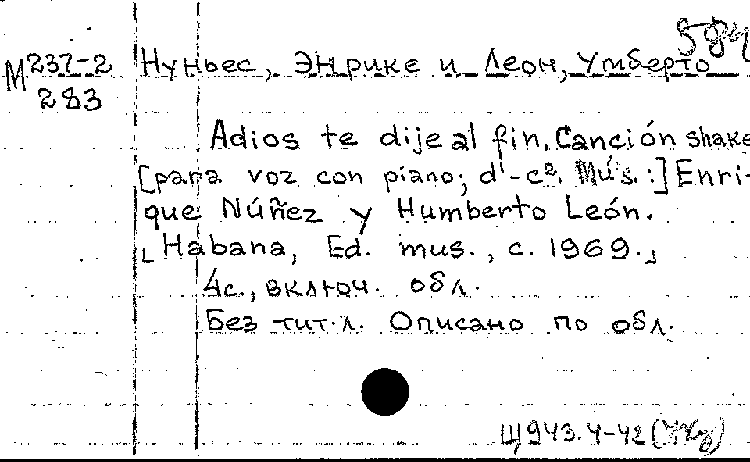 584
М 237-2 Нуньес, Энрике и Леон, Умберто
283
Adios te dije al fin. Canción shake
[para voz con piano; d¹-c². Mús.:] Enri-
que Núñez y Humberto León.
[Habana, Ed. mus., c. 1969.]
4с., включ. обл.
Без тит.л. Описано по обл.
Щ943.4-42